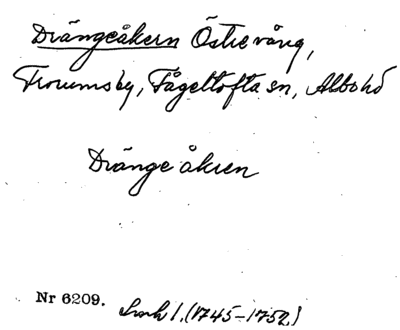 Drängeåkern Östre vång,
Trorumsby, Fågeltofta sn, Albo hd
Drängeåkren
Nr 6209. Lmk 1. (1745-1752)